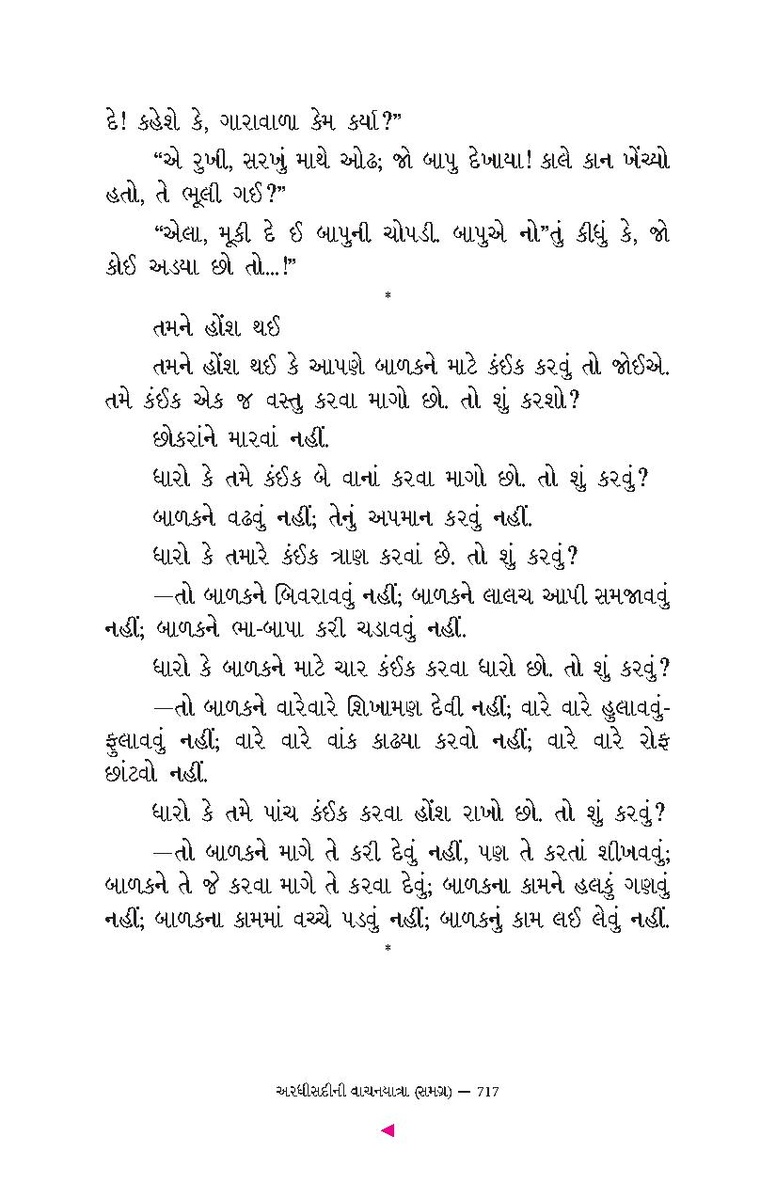 દે! કહેશે કે, ગારાવાળા કેમ કર્યા?”
“એ રુખી, સરખું માથે ઓઢ; જો બાપુ દેખાયા! કાલે કાન ખેંચ્યો
હતો, તે ભૂલી ગઈ?”
“એલા, મૂકી દે ઈ બાપુની ચોપડી. બાપુએ નો”તું કીધું કે, જો
કોઈ અડયા છો તો...!”
*
તમને હોંશ થઈ
તમને હોંશ થઈ કે આપણે બાળકને માટે કંઈક કરવું તો જોઈએ.
તમે કંઈક એક જ વસ્તુ કરવા માગો છો. તો શું કરશો?
છોકરાંને મારવાં નહીં.
ધારો કે તમે કંઈક બે વાનાં કરવા માગો છો. તો શું કરવું?
બાળકને વઢવું નહીં; તેનું અપમાન કરવું નહીં.
ધારો કે તમારે કંઈક ત્રાણ કરવાં છે. તો શું કરવું?
—તો બાળકને બિવરાવવું નહીં; બાળકને લાલચ આપી સમજાવવું
નહીં; બાળકને ભા-બાપા કરી ચડાવવું નહીં.
ધારો કે બાળકને માટે ચાર કંઈક કરવા ધારો છો. તો શું કરવું?
—તો બાળકને વારેવારે શિખામણ દેવી નહીં; વારે વારે હુલાવવું-
ફુલાવવું નહીં; વારે વારે વાંક કાઢયા કરવો નહીં; વારે વારે રોફ
છાંટવો નહીં.
ધારો કે તમે પાંચ કંઈક કરવા હોંશ રાખો છો. તો શું કરવું?
—તો બાળકને માગે તે કરી દેવું નહીં, પણ તે કરતાં શીખવવું;
બાળકને તે જે કરવા માગે તે કરવા દેવું; બાળકના કામને હલકું ગણવું
નહીં; બાળકના કામમાં વચ્ચે પડવું નહીં; બાળકનું કામ લઈ લેવું નહીં.
*
અરધીસદીની વાચનયાત્રા (સમગ્ર) — 717